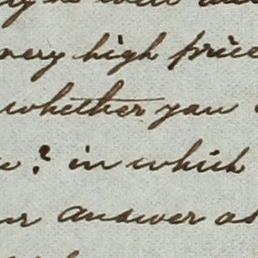 very high price
whether you
? in which
answer as